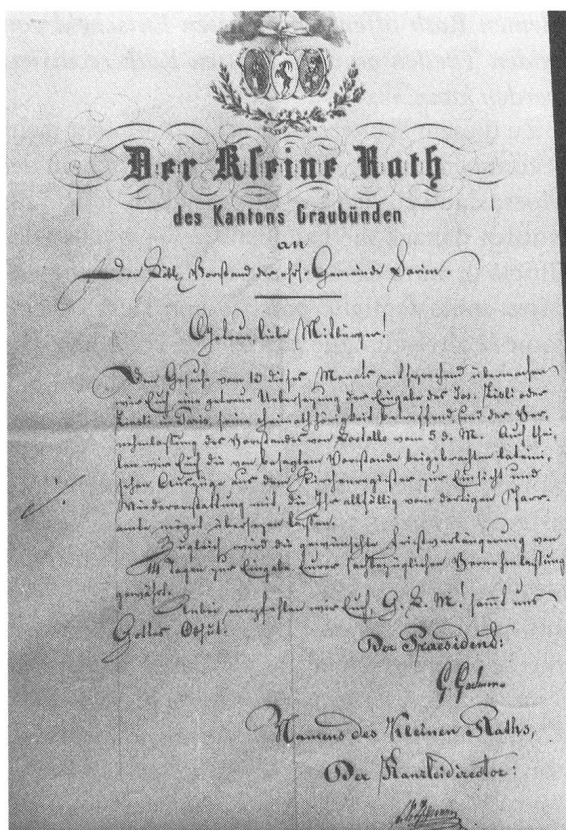 Der Kleine Rath
des Kantons Graubünden
an
den Löbl. Vorstand der ehrs. Gemeinde Sarn
Getreue, liebe Mitbürger!
Dem Gesuche vom 10 dieses Monats entsprechend übermachen
wir Euch eine getreue Uebersetzung der Eingabe des Jos. Züsli oder
in Paris, seine Heimathhörigkeit betreffend und der Ver-
nehmlassung des Vorstandes von vom 5 d. M. Auch thei-
len wir Euch die von besagtem Vorstande beigebrachten lateini-
schen Auszüge aus dem Kirchenregister zur Einsicht und
Wiedererstattung mit, die Ihr allfällig vom dortigen Pfarr-
amte möget übersetzen lassen.
Zugleich wird die gewünschte Fristverlängerung von
14 Tagen zur Eingabe Eurer fachbezüglichen Vernehmlassung
gewährt.
Anbei empfehlen wir Euch, G. L. M.! sammt uns
Gottes Obhut.
Der Praesident:
Namens des Kleinen Raths,
Der Kanzleidirector: